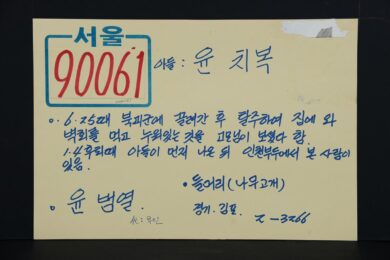 서울
90061
아들 : 윤 치복
o. 6.25때 북괴군에 끌려간 후 탈주하여 집에 와
벽회를 먹고 누워있는것을 고모님이 보셨다 함.
1.4후퇴때 아들이 먼저 나온 뒤 인천부두에서 본 사람이
있음.
• 들어리 (나무고개)
o. 윤 범열.
경기. 김포.
Z-3266